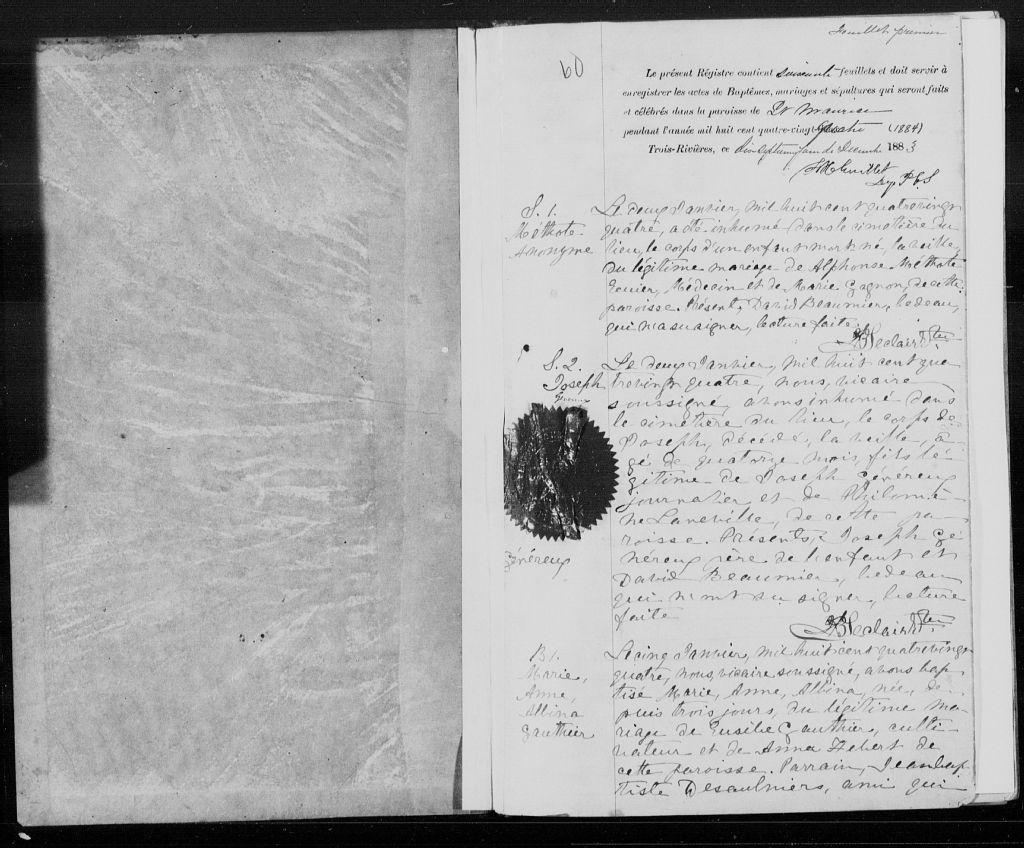 Feuillet premier
60
Le présent Régistre contient soixante feuillets et doit servir à
enregistrer les actes de Baptêmes, mariages et sépultures qui seront faits
et célébrés dans la paroisse de St Maurice
pendant l'année mil huit cent quatre-vingt quatre (1884)
Trois-Rivières, ce dix septième jour de Décembre 1883
Dep. P.C.S
S. 1.
Méthote
Anonyme
Le deux Janvier, mil huit cent quatrevingt
quatre, a été inhumé dans le cimetière du
lieu, le corps d'un enfant mort né, la veille,
du légitime mariage de Alphonse Méthote
Ecuier, Médecin et de Marie Gagnon, de cette
paroisse. Présent, David Beaumier, bedeau,
qui n'a su signer, lecture faite.
Leclair Ptre
S. 2.
Joseph
Généreux
Le deux Janvier, mil huit cent qua
trevingt quatre, nous, vicaire
soussigné, avons inhumé dans
le cimetière du lieu, le corps de
Joseph, décédé, la veille, â-
gé de quatorze mois, fils lé-
gitime de Joseph Généreux
journalier et de Philomè-
ne Laneville, de cette pa-
roisse. Présents, Joseph Gé-
néreux père de l'enfant et
David Beaumier, bedeau
qui n'ont su signer, lecture
faite
Leclair Ptre
B 1.
Marie,
Anne,
Albina
Gauthier
Le cinq Janvier, mil huit cent quatrevingt
quatre, nous, vicaire soussigné, avons bap
tisé Marie, Anne, Albina, née, de-
puis trois jours, du légitime ma-
riage de Eusèbe Gauthier, culti-
vateur et de Anna Hebert de
cette paroisse. Parrain, Jean bap-
tiste Desaulniers, ami qui